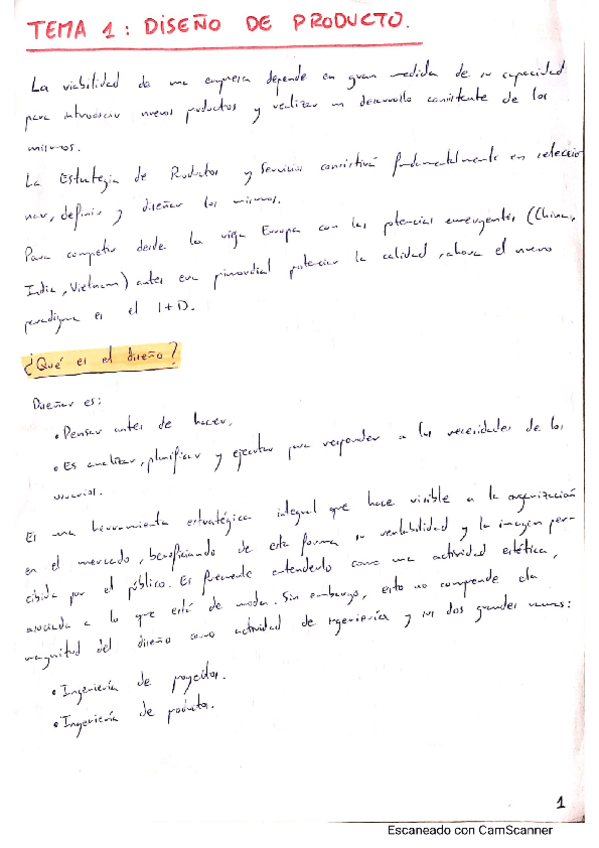 TEMA 1: DISEÑO DE PRODUCTO.
La viabilidad de una empresa depende en gran medida de su capacidad
para introducir nuevos productos y realizar un desarrollo consistente de los
mismos.
La Estrategia de Productos y Servicios consistirá fundamentalmente en seleccio
nar, definir y diseñar los mismos.
Para competir desde la vieja Europa con las potencias emergentes (China,
India, Vietnam) antes era primordial potenciar la calidad, ahora el nuevo
paradigma es el I+D.
¿Qué es el diseño?
Diseñar es:
• Pensar antes de hacer.
• Es analizar, planificar y ejecutar para responder a las necesidades de los
usuarios.
Es una herramienta estratégica integral que hace visible a la organización
en el mercado, beneficiando de esta forma su rentabilidad y la imagen per-
cibida por el público. Es frecuente entenderlo como una actividad estética,
asociada a lo que está de moda. Sin embargo, esto no comprende la
magnitud del diseño como actividad de ingeniería y sus dos grandes ramas:
• Ingeniería de proyectos.
• Ingeniería de producto.
1
Escaneado con CamScanner